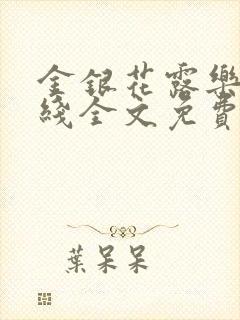 金銀花露樂
綫全文免費
葉呆呆